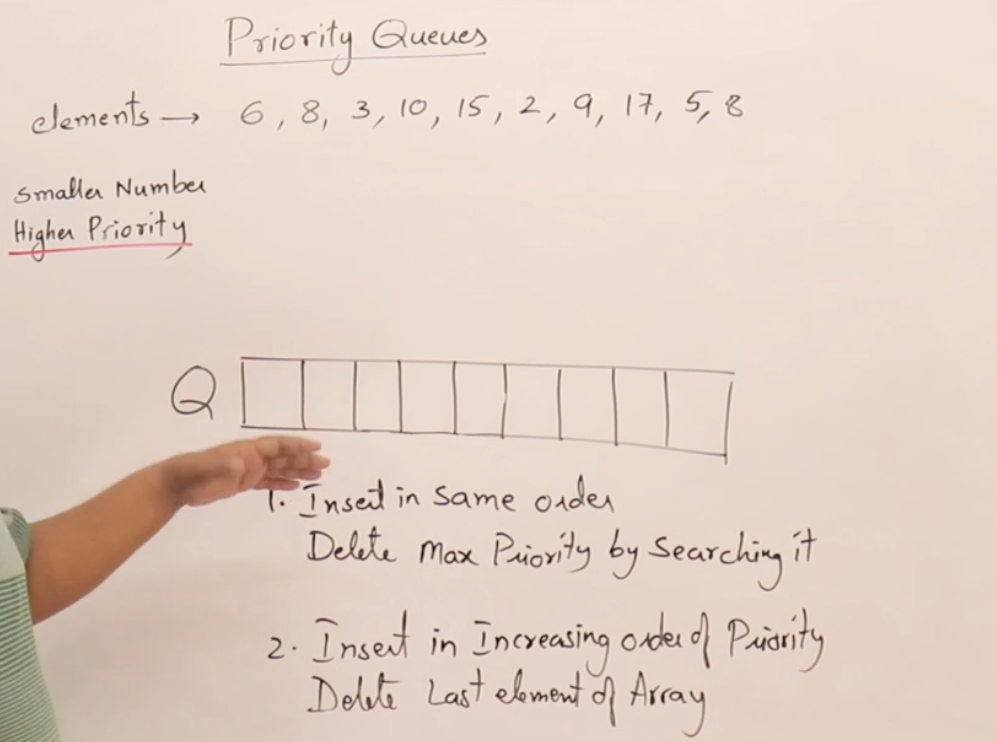 Priority Queues
elements → 6, 8, 3, 10, 15, 2, 9, 17, 5, 8
Smaller Number
Higher Priority
Q
1. Insert in same order
Delete Max Priority by Searching it
2. Insert in Increasing order of Priority
Delete Last element of Array